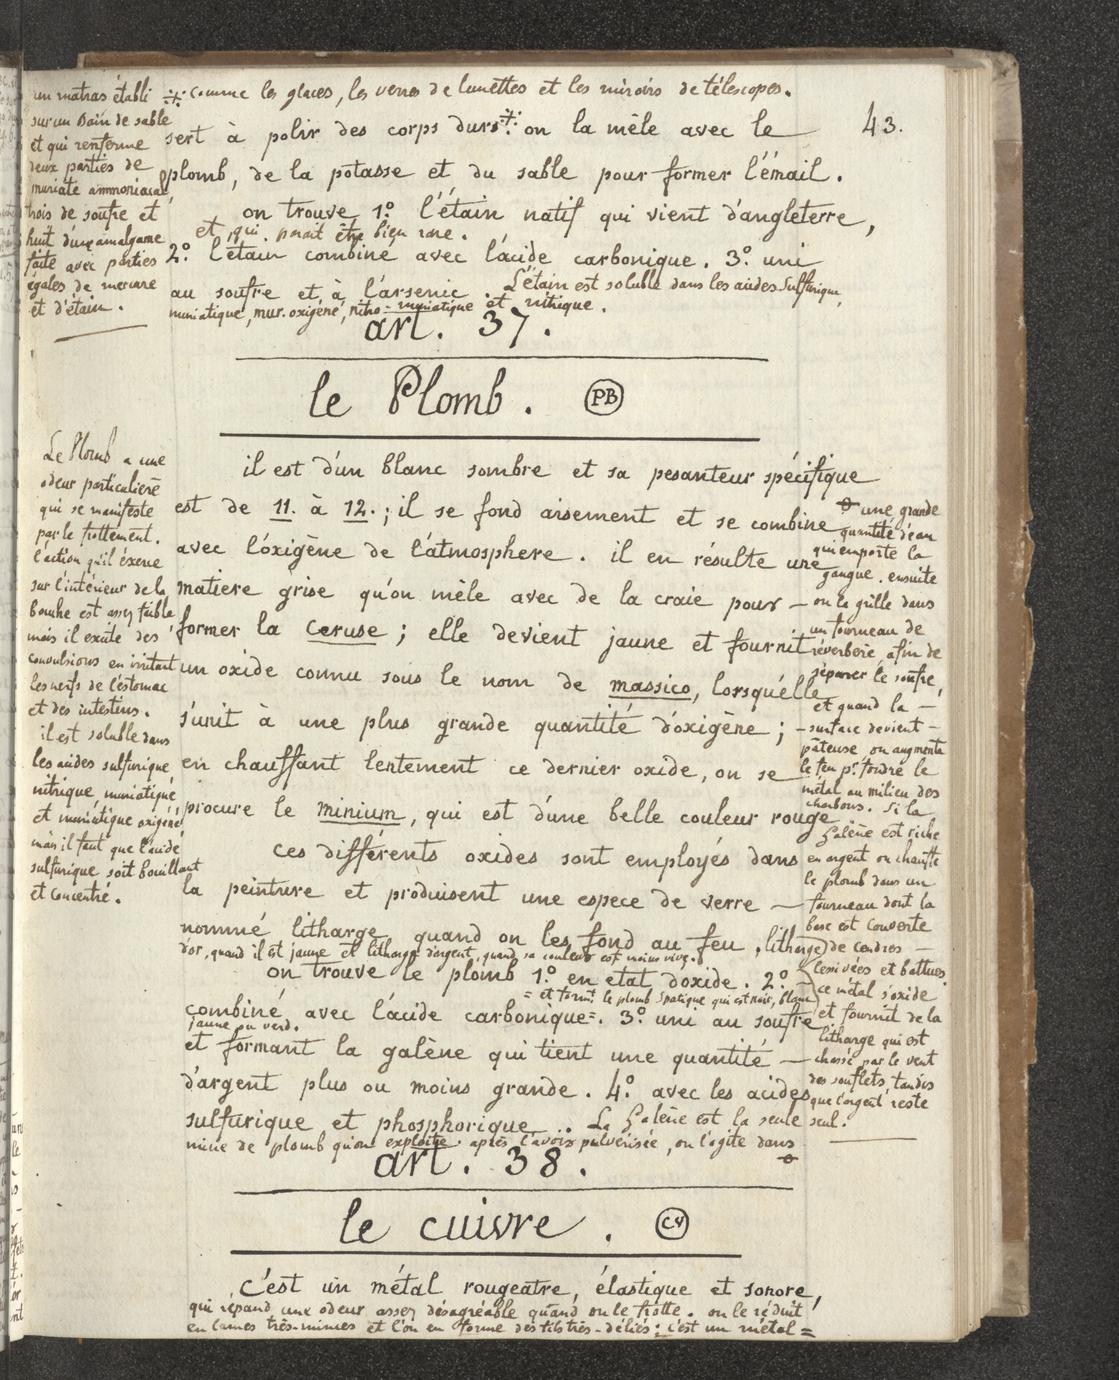 ⁜ comme les glaces, les verres de lunettes et les miroirs de télescopes.
43.
sert à polir des corps durs⁜. on la mêle avec le
plomb, de la potasse et du sable pour former l'émail.
on trouve 1.º l'étain natif qui vient d'angleterre,
et qui parait être bien rare.
2.º l'étain combiné avec l'acide carbonique. 3.º uni
au soufre et à l'arsenic. L'étain est soluble dans les acides sulfurique,
muriatique, mur. oxigéné, nitro-muriatique et nitrique.
un matras établi
sur un Bain de sable
et qui renferme
deux parties de
muriate ammoniacal,
trois de soufre et
huit d'une amalgame
faite avec parties
égales de mercure
et d'étain.
art. 37.
le Plomb. PB
il est d'un blanc sombre et sa pesanteur spécifique
est de 11. à 12.; il se fond aisement et se combine
avec l'oxigène de l'atmosphere. il en résulte une
matiere grise qu'on mêle avec de la craie pour —
former la ceruse; elle devient jaune et fournit
un oxide connu sous le nom de massico, lorsqu'elle
s'unit à une plus grande quantité d'oxigène; —
en chauffant lentement ce dernier oxide, on se
procure le minium, qui est d'une belle couleur rouge
ces différents oxides sont employés dans
la peinture et produisent une espece de verre —
nommé litharge quand on les fond au feu, litharge
d'or, quand il est jaune et litharge d'argent, quand sa couleur est moins vive.
on trouve le plomb 1.º en etat d'oxide. 2.º
= et form.t le plomb spatique qui est noir, blanc
combiné avec l'acide carbonique=. 3.º uni au soufre
jaune ou verd.
et formant la galène qui tient une quantité —
d'argent plus ou moins grande. 4.º avec les acides
sulfurique et phosphorique .. La Galène est la seule
mine de plomb qu'on exploite. après l'avoir pulvérisée, on l'agite dans
Le Plomb a une
odeur particulière
qui se manifeste
par le frottement.
l'action qu'il éxerce
sur l'intérieur de la
bouche est assez faible
mais il exite des
convulsions en irritant
les nerfs de l'éstomac
et des intestins.
il est soluble dans
les acides sulfurique,
nitrique, muriatique,
et muriatique oxigéné
mais il faut que l'acide
sulfurique soit bouillant
et concentré.
une grande
quantité d'eau
qui emporte la
gangue. ensuite
on la grille dans
un fourneau de
réverbere afin de
séparer le soufre,
et quand la —
surface devient —
pâteuse on augmente
le feu p.r fondre le
métal au milieu des
charbons. Si la
Galène est riche
en argent on chauffe
le plomb dans un
fourneau dont la
base est couverte
de cendres —
lessivées et battues
ce métal s'oxide
et fournit de la
litharge qui est
chassé par le vent
des souflets, tandis
que l'argent reste
seul.
art. 38.
le cuivre. CV
c'est un métal rougeatre, élastique et sonore,
qui répand une odeur assez désagréable quand on le frotte. on le réduit
en lames très-minces et l'on en forme des fils très-déliés: c'est un métal=